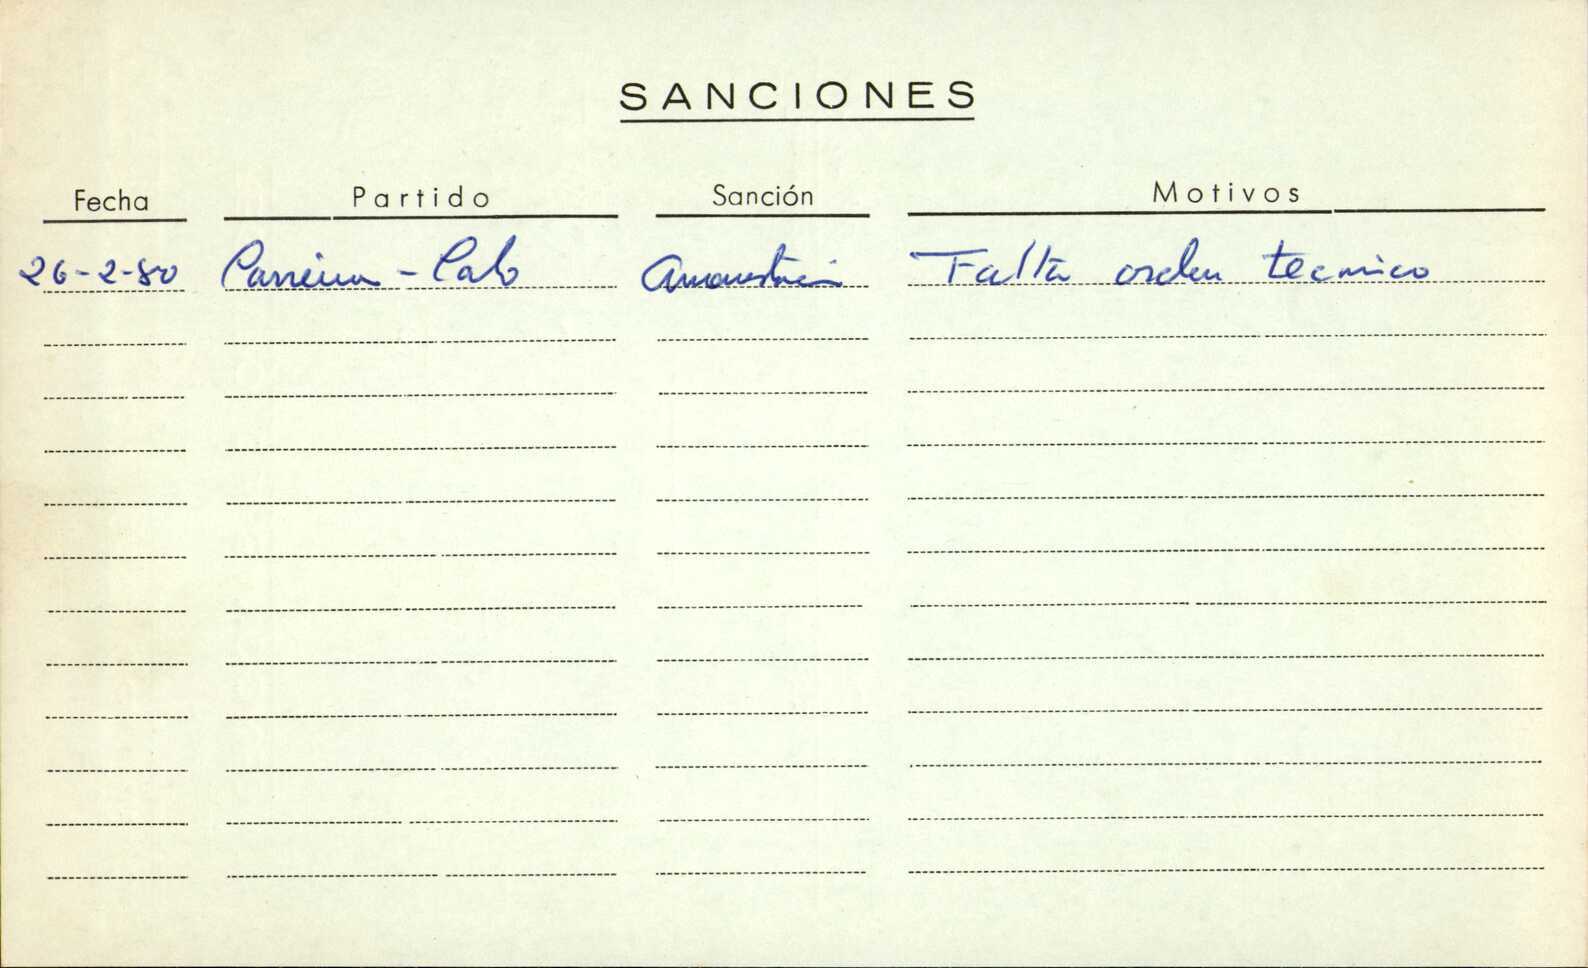 SANCIONES
Fecha Partido Sanción Motivos
26-2-80 Carreira - Calo Amonestación Falta orden tecnico